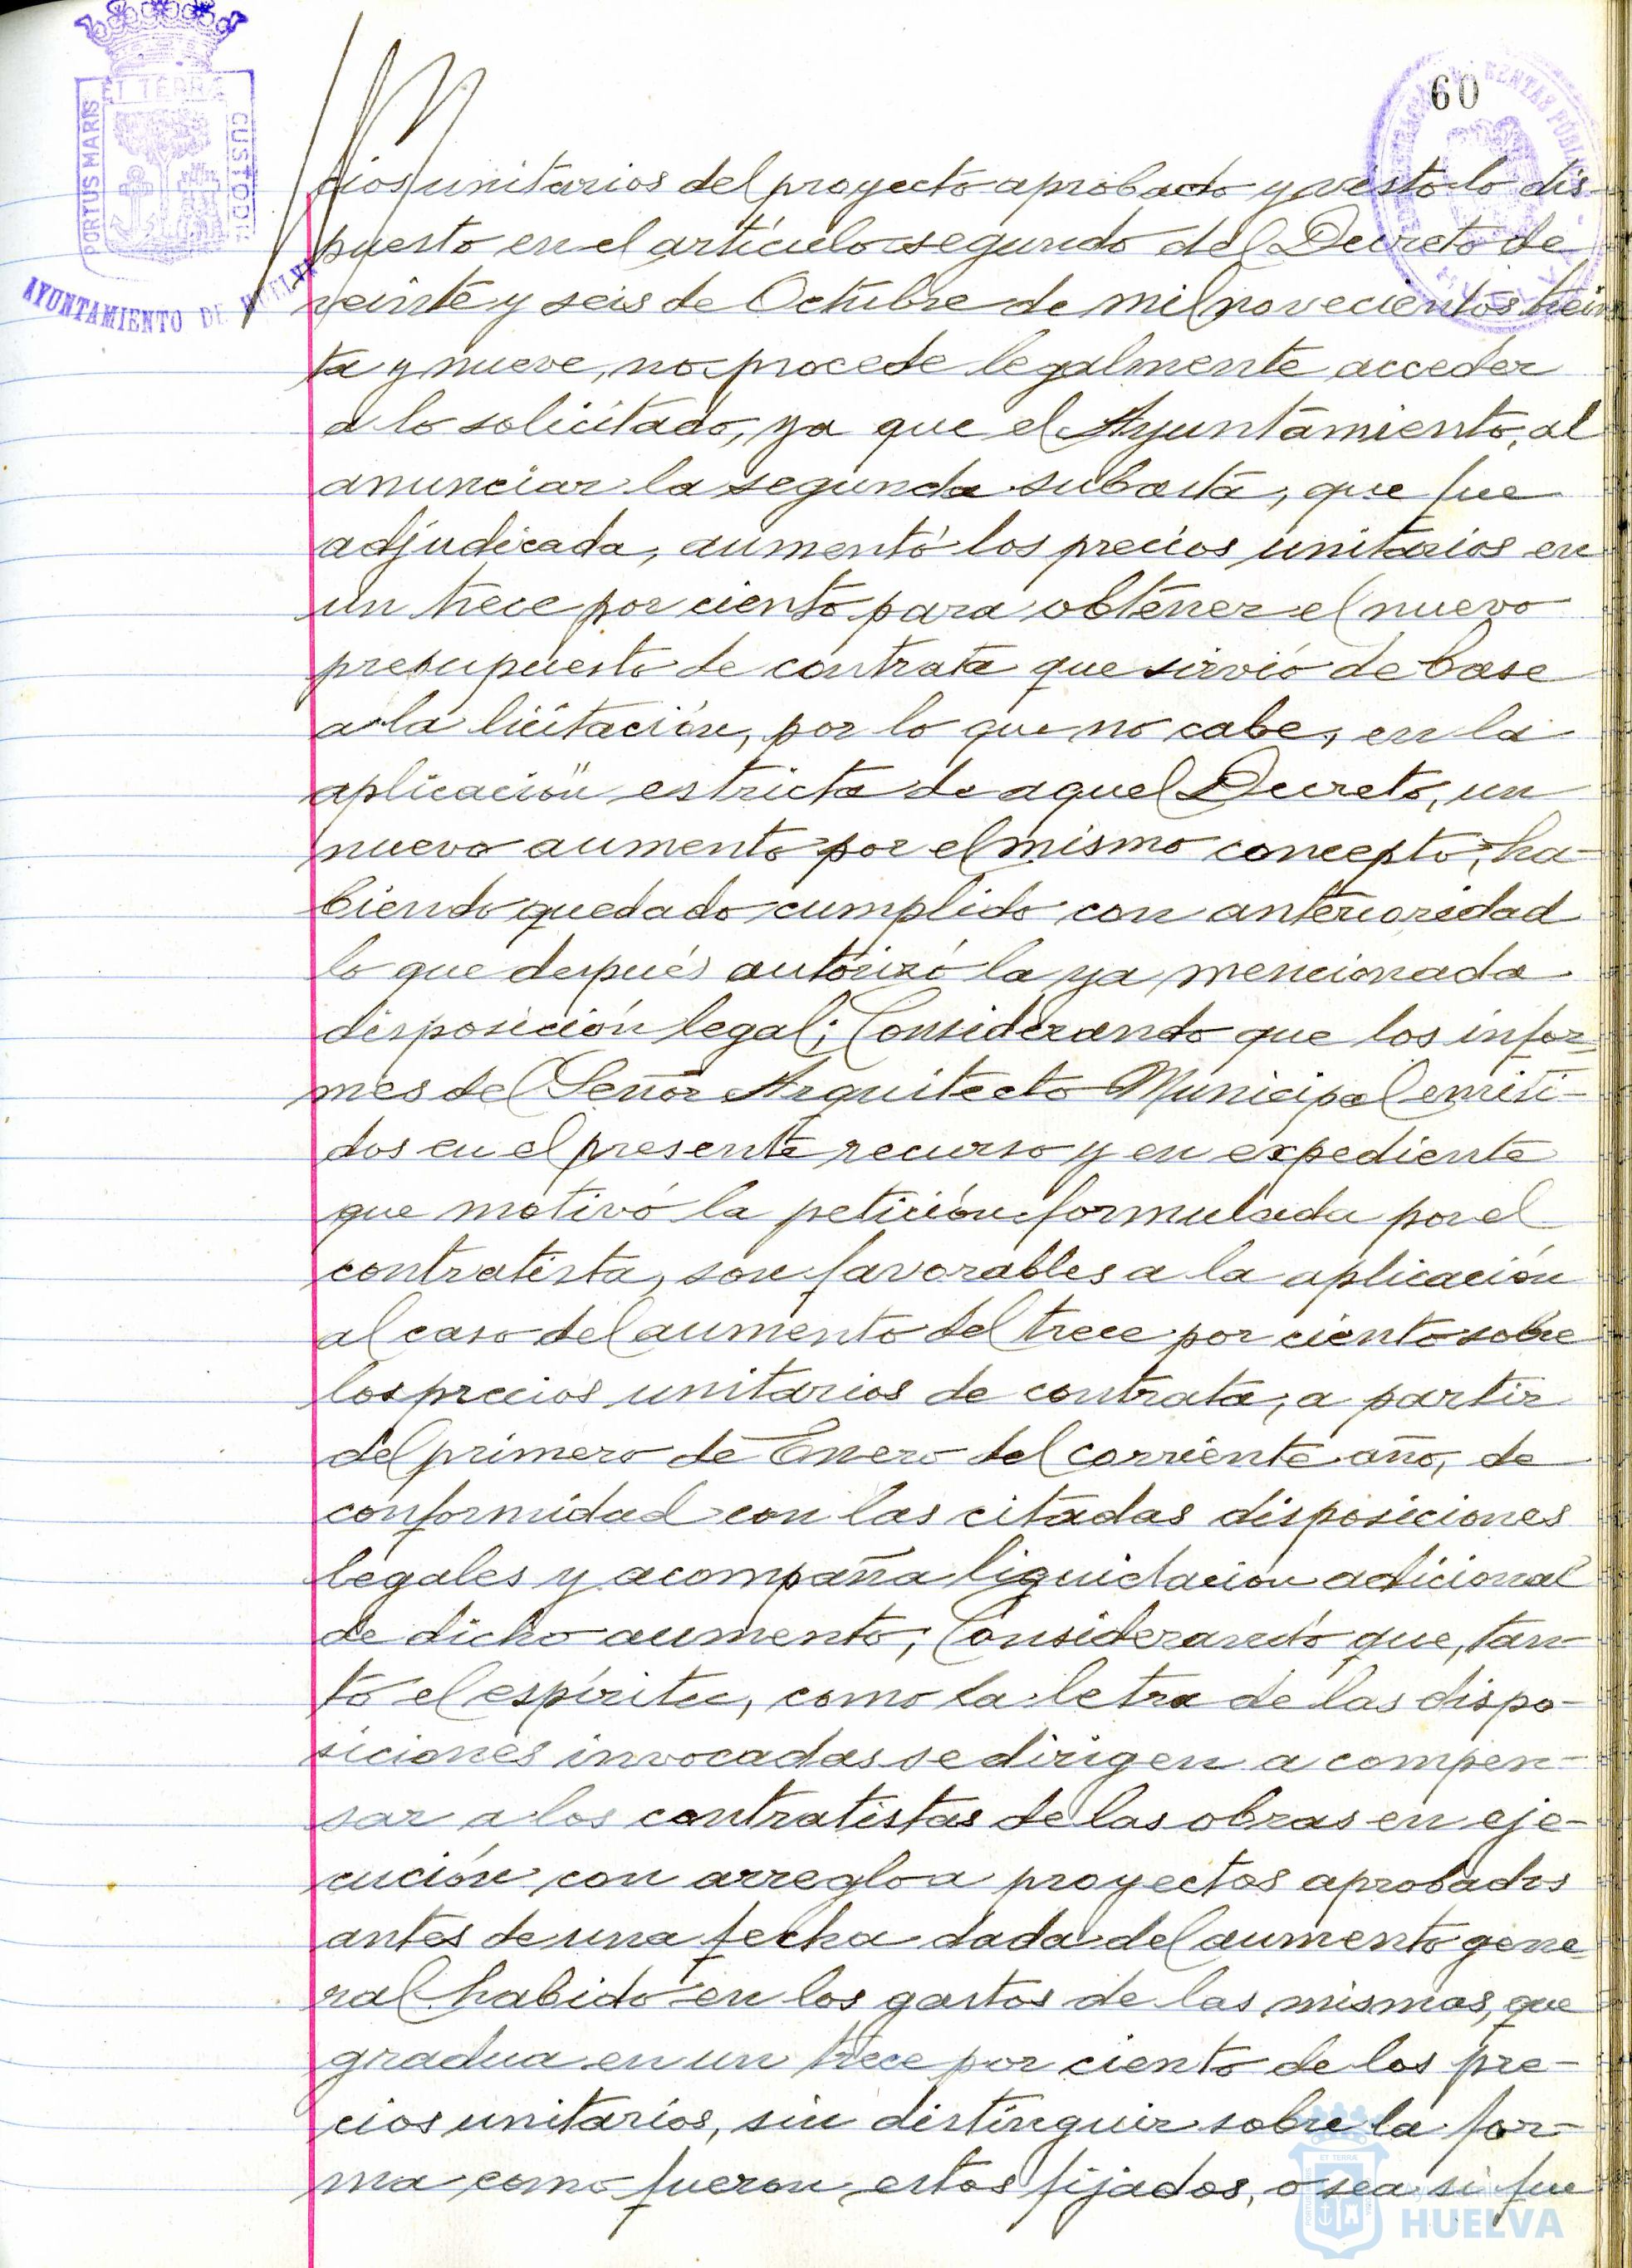 60
ET TERRÆ
PORTUS MARIS
CUSTODIA
AYUNTAMIENTO DE HUELVA
cios unitarios del proyecto aprobado y visto lo dis-
puesto en el artículo segundo del Decreto de
veinte y seis de Octubre de mil novecientos trein
ta y nueve, no procede legalmente acceder
a lo solicitado, ya que el Ayuntamiento, al
anunciar la segunda subasta, que fue
adjudicada, aumentó los precios unitarios en
un trece por ciento para obtener el nuevo
presupuesto de contrata que sirvió de base
a la licitación, por lo que no cabe, en la
aplicación estricta de aquel Decreto, un
nuevo aumento por el mismo concepto, ha-
biendo quedado cumplido con anterioridad
lo que después autorizó la ya mencionada
disposición legal; Considerando que los infor-
mes del Señor Arquitecto Municipal emiti-
dos en el presente recurso y en expediente
que motivó la petición formulada por el
contratista, son favorables a la aplicación
al caso del aumento del trece por ciento sobre
los precios unitarios de contrata, a partir
del primero de Enero del corriente año, de
conformidad con las citadas disposiciones
legales y acompaña liquidación adicional
de dicho aumento; Considerando que, tan-
to el espíritu, como la letra de las dispo-
siciones invocadas se dirigen a compen-
sar a los contratistas de las obras en eje-
cución con arreglo a proyectos aprobados
antes de una fecha dada del aumento gene-
ral habido en los gastos de las mismas, que
gradua en un trece por ciento de los pre-
cios unitarios, sin distinguir sobre la for-
ma como fueron estos fijados, o sea si fue
HUELVA